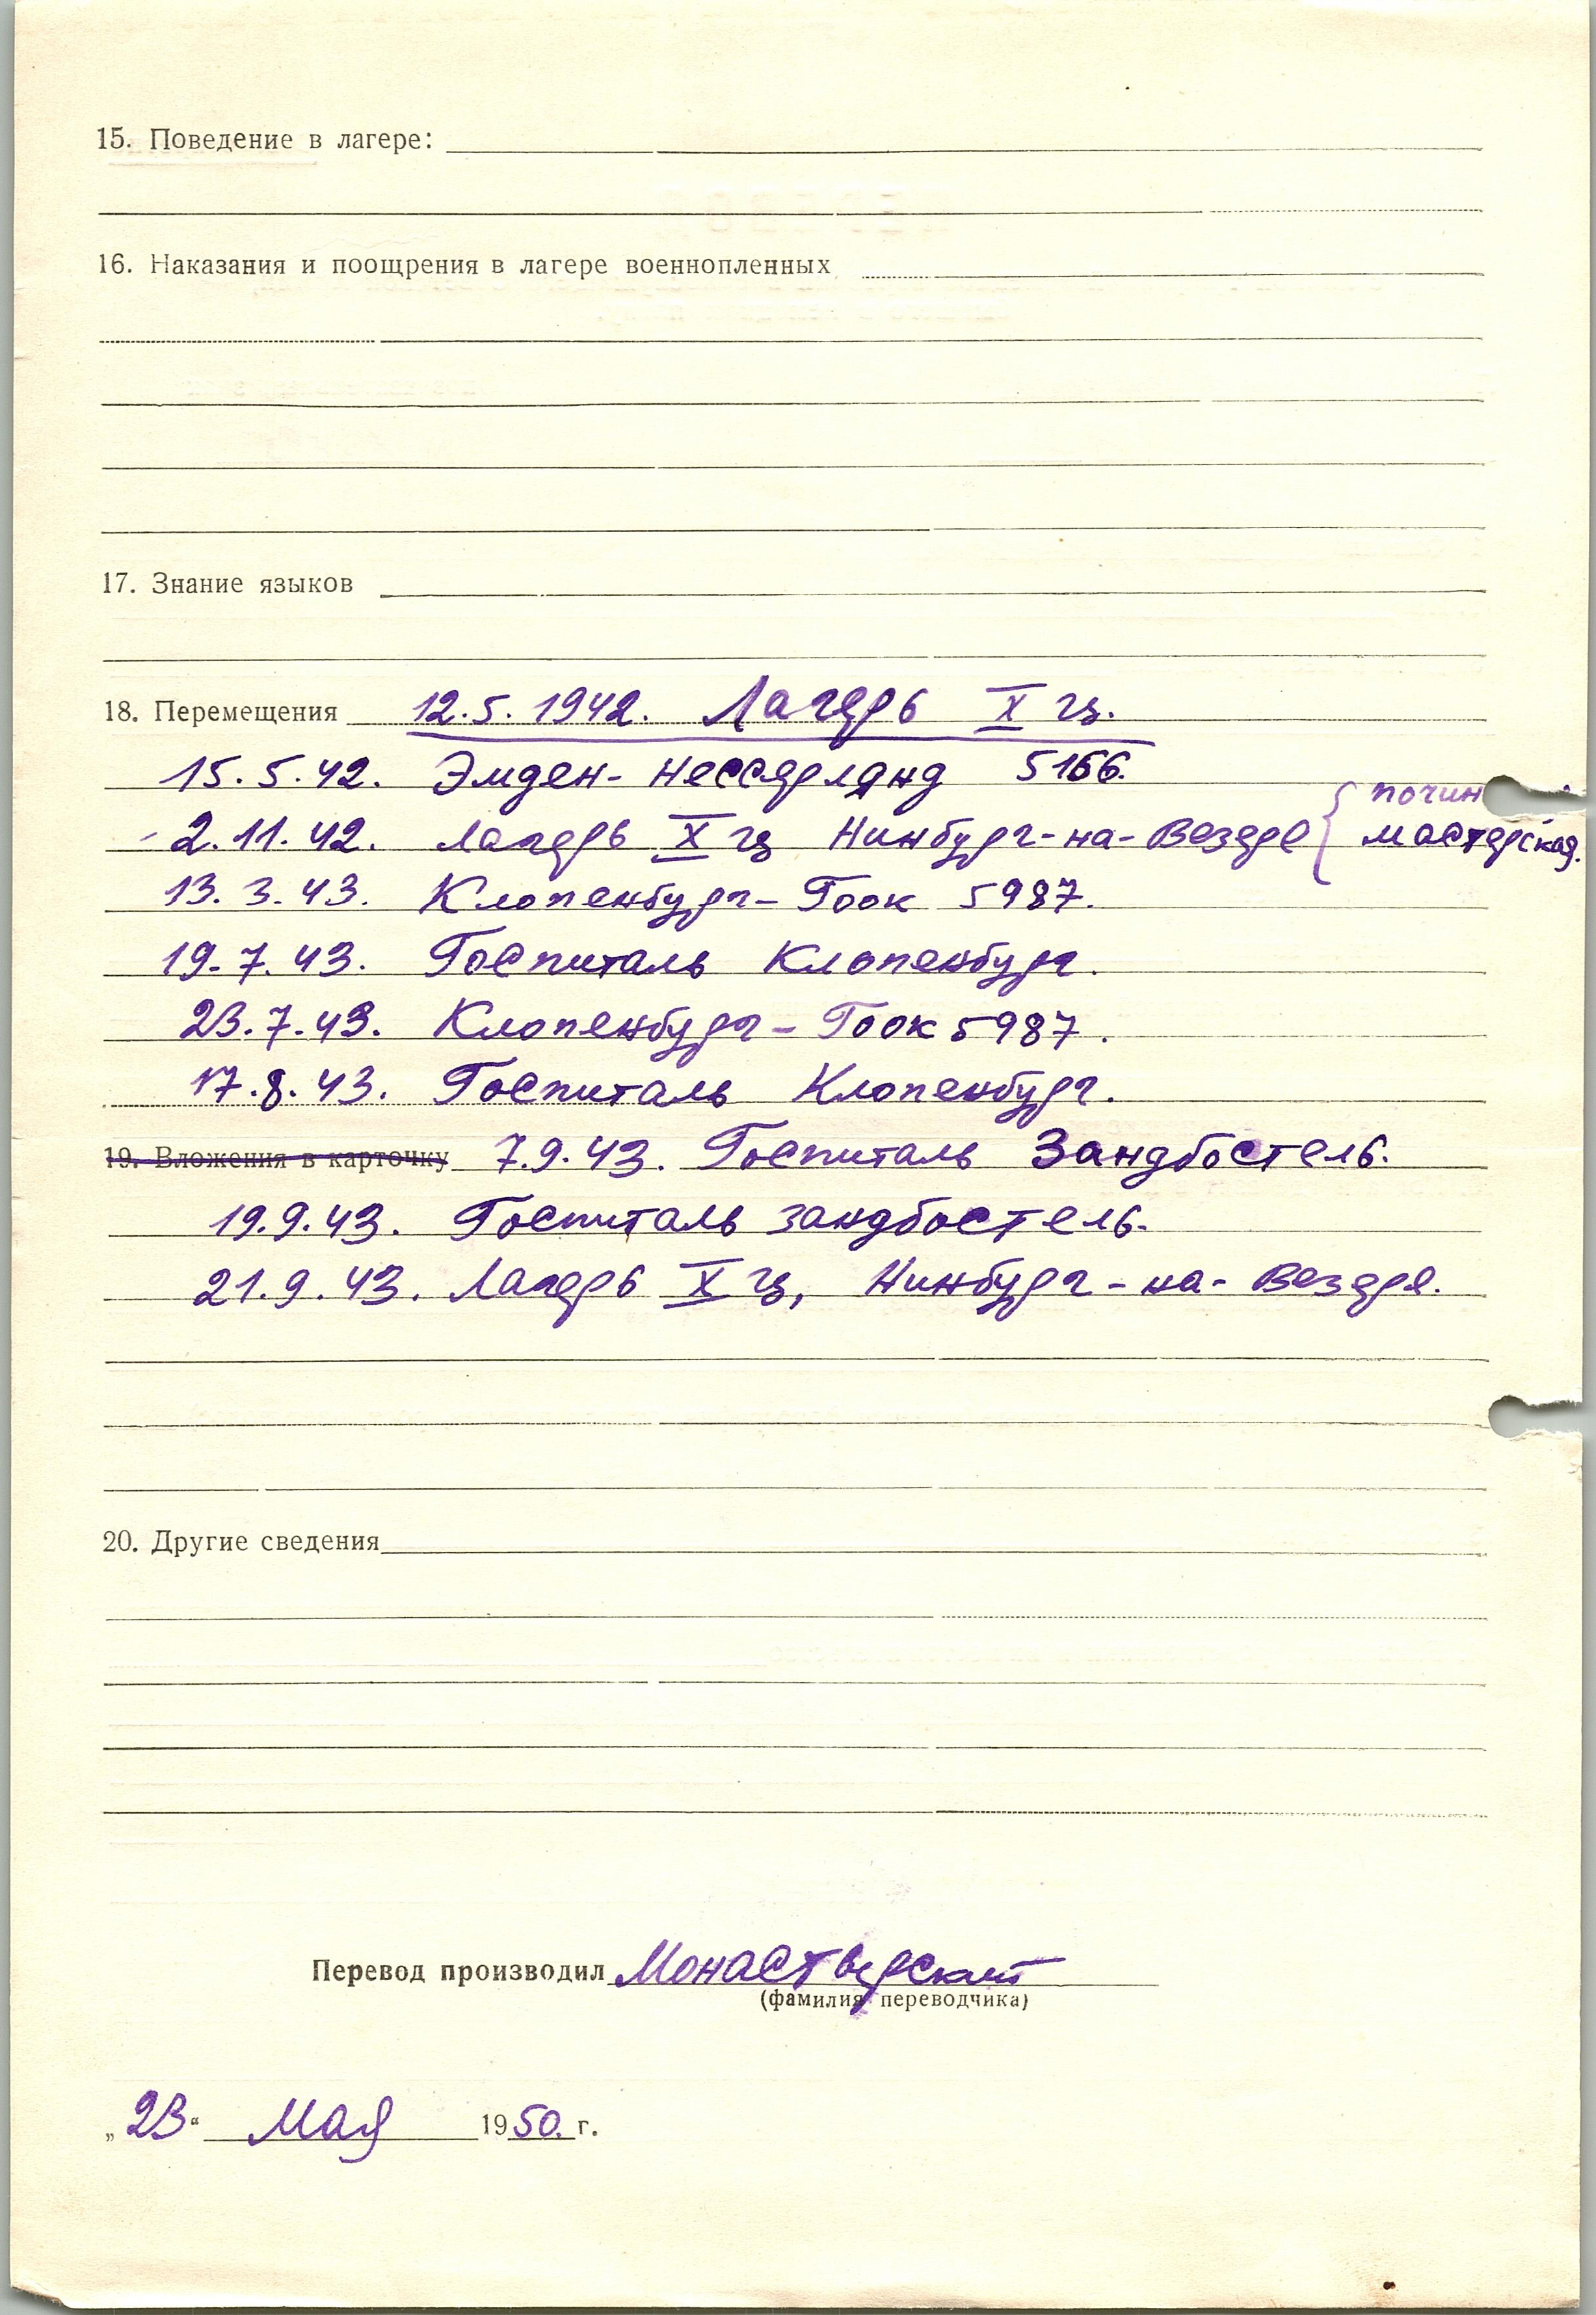 15. Поведение в лагере:
16. Наказания и поощрения в лагере военнопленных
17. Знание языков
18. Перемещения 12.5.1942. Лагерь X ц.
15.5.42. Эмден-Нессерлянд 5166.
2.11.42. Лагерь X ц Нинбург-на-Везере { почин
мастерская.
13.3.43. Клопенбург-Гоок 5987.
19.7.43. Госпиталь Клопенбург.
23.7.43. Клопенбург-Гоок 5987.
17.8.43. Госпиталь Клопенбург.
19. Вложения в карточку 7.9.43. Госпиталь Зандбостель.
19.9.43. Госпиталь Зандбостель.
21.9.43. Лагерь X ц, Нинбург-на-Везере.
20. Другие сведения
Перевод производил
(фамилия переводчика)
„23“ Мая 1950. г.